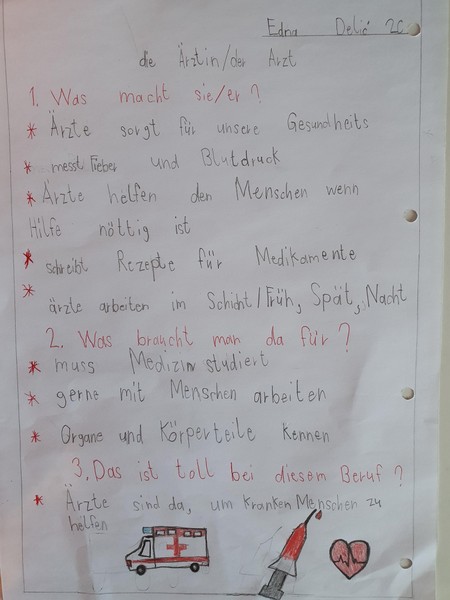 Edna Delić 2C
die Ärztin/der Arzt
1. Was macht sie/er?
* Ärzte sorgt für unsere Gesundheits
* messt Fieber und Blutdruck
* Ärzte helfen den Menschen wenn
Hilfe nöttig ist
* schreibt Rezepte für Medikamente
* ärzte arbeiten im Schicht/Früh, Spät, Nacht
2. Was braucht man da für?
* muss Medizin studiert
* gerne mit Menschen arbeiten
* Organe und Körperteile kennen
3. Das ist toll bei diesem Beruf?
* Ärzte sind da, um kranken Menschen zu
helfen